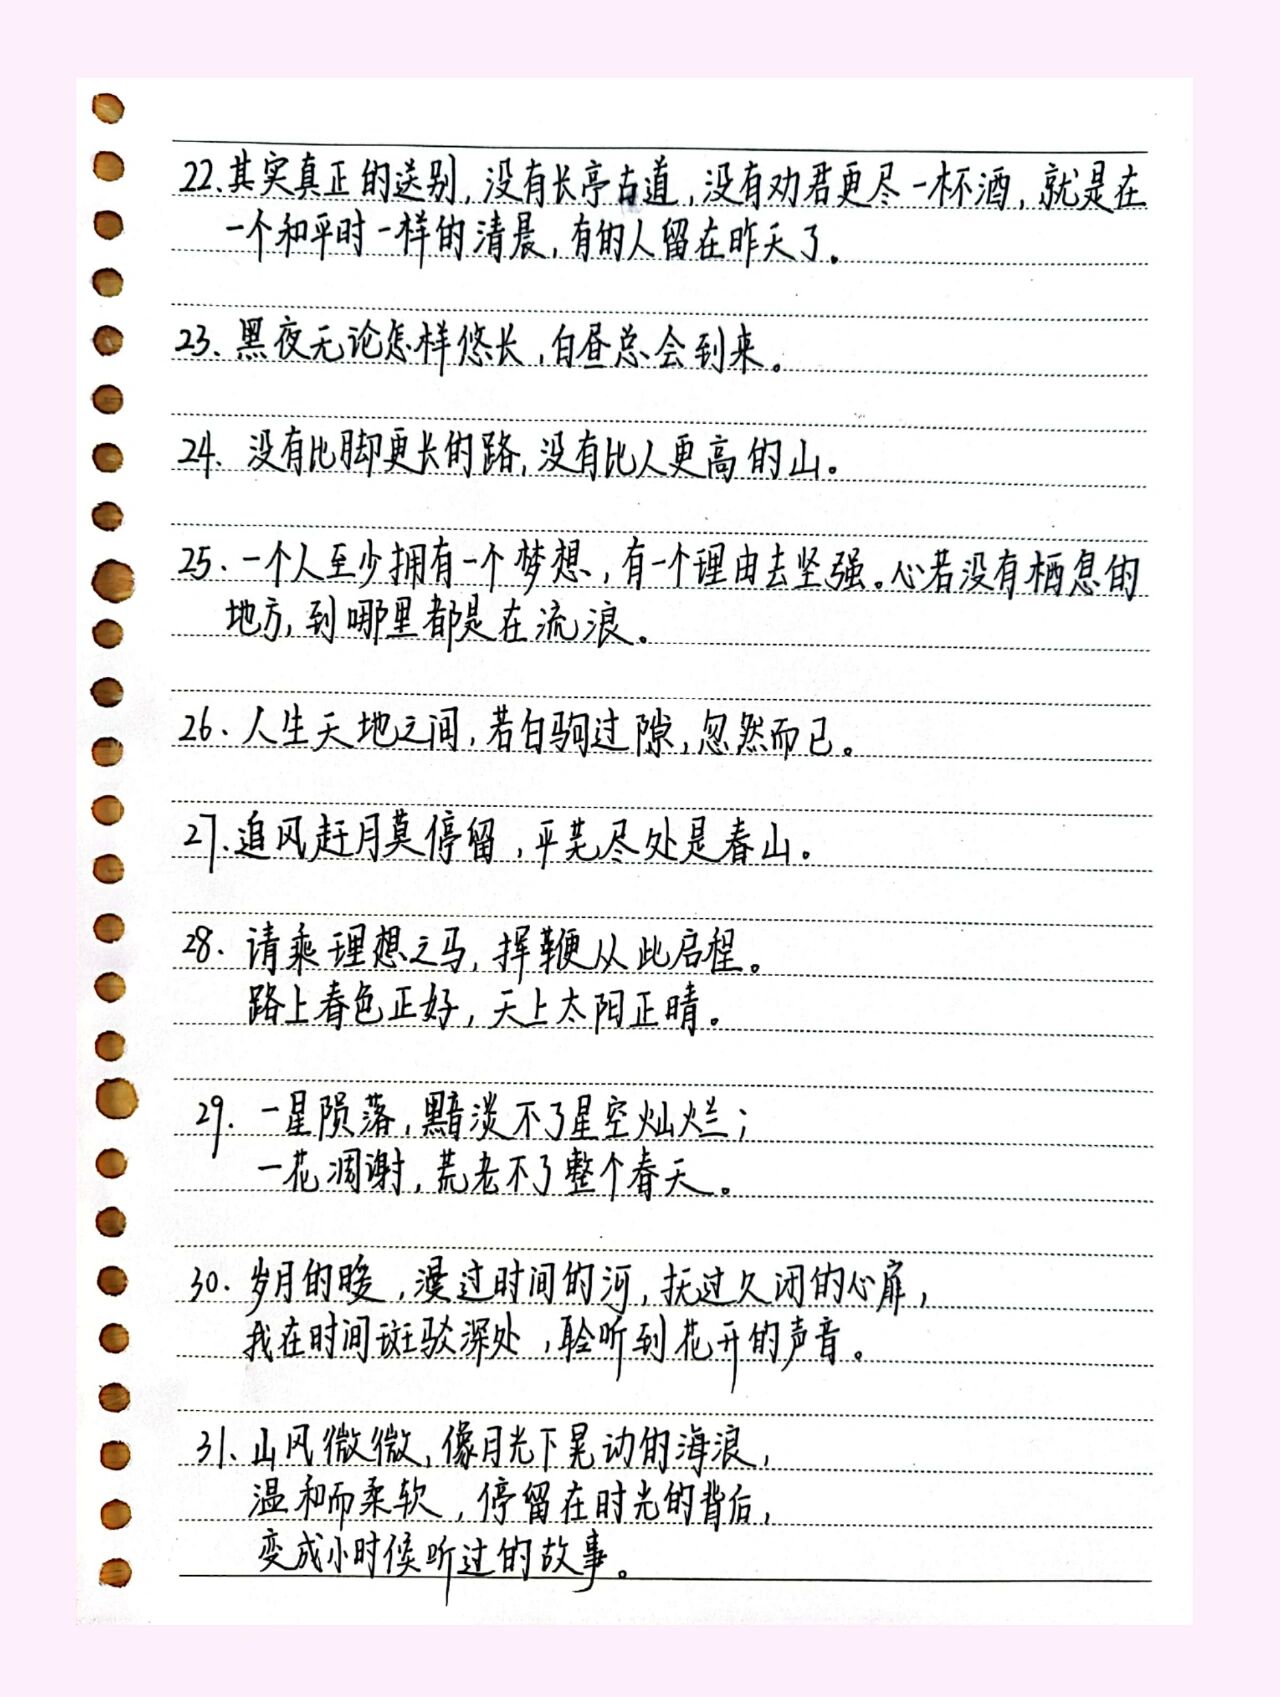 22.其实真正的送别,没有长亭古道,没有劝君更尽一杯酒,就是在
一个和平时一样的清晨,有的人留在昨天了。
23.黑夜无论怎样悠长,白昼总会到来。
24.没有比脚更长的路,没有比人更高的山。
25.一个人至少拥有一个梦想,有一个理由去坚强。心若没有栖息的
地方,到哪里都是在流浪。
26.人生天地之间,若白驹过隙,忽然而已。
27.追风赶月莫停留,平芜尽处是春山。
28.请乘理想之马,挥鞭从此启程。
路上春色正好,天上太阳正晴。
29.一星陨落,黯淡不了星空灿烂;
一花凋谢,荒老不了整个春天。
30.岁月的暖,漫过时间的河,抚过久闭的心扉,
我在时间斑驳深处,聆听到花开的声音。
31.山风微微,像月光下晃动的海浪,
温和而柔软,停留在时光的背后,
变成小时候听过的故事。